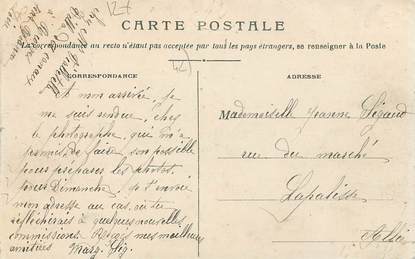 127
CARTE POSTALE
La correspondance au recto n'étant pas acceptée par tous les pays étrangers, se renseigner à la Poste
CORRESPONDANCE
ADRESSE
A mon arrivée, je
me suis rendue, chez
le photographe, qui m'a
promis de faire son possible
pour préparer les photos
pour Dimanche, je t'envoie
mon adresse au cas, où tu
réfléchirais à quelques nouvelles
commissions. Reçois mes meilleures
amitiés
Mademoiselle Jeanne
rue du marché
Lapalisse
Allier